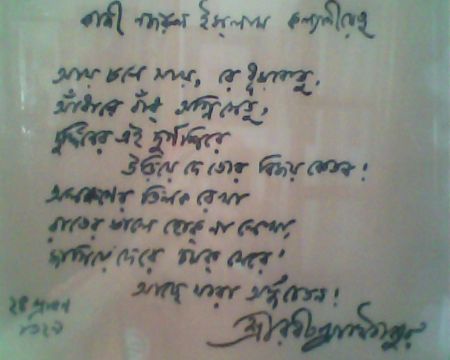 কাজী নজরুল ইসলাম কল্যাণীয়েষু
আয় চলে আয়, রে ধূমকেতু,
আঁধারে বাঁধ্ অগ্নিসেতু,
দুর্দিনের এই দুর্গশিরে
উড়িয়ে দে তোর বিজয় কেতন!
অলক্ষণের তিলক রেখা
রাতের ভালে হোক্ না লেখা,
জাগিয়ে দেরে চমক মেরে'
আছে যারা অর্দ্ধচেতন!
২৪ শ্রাবণ
১৩২৯
শ্রীরবীন্দ্রনাথ ঠাকুর